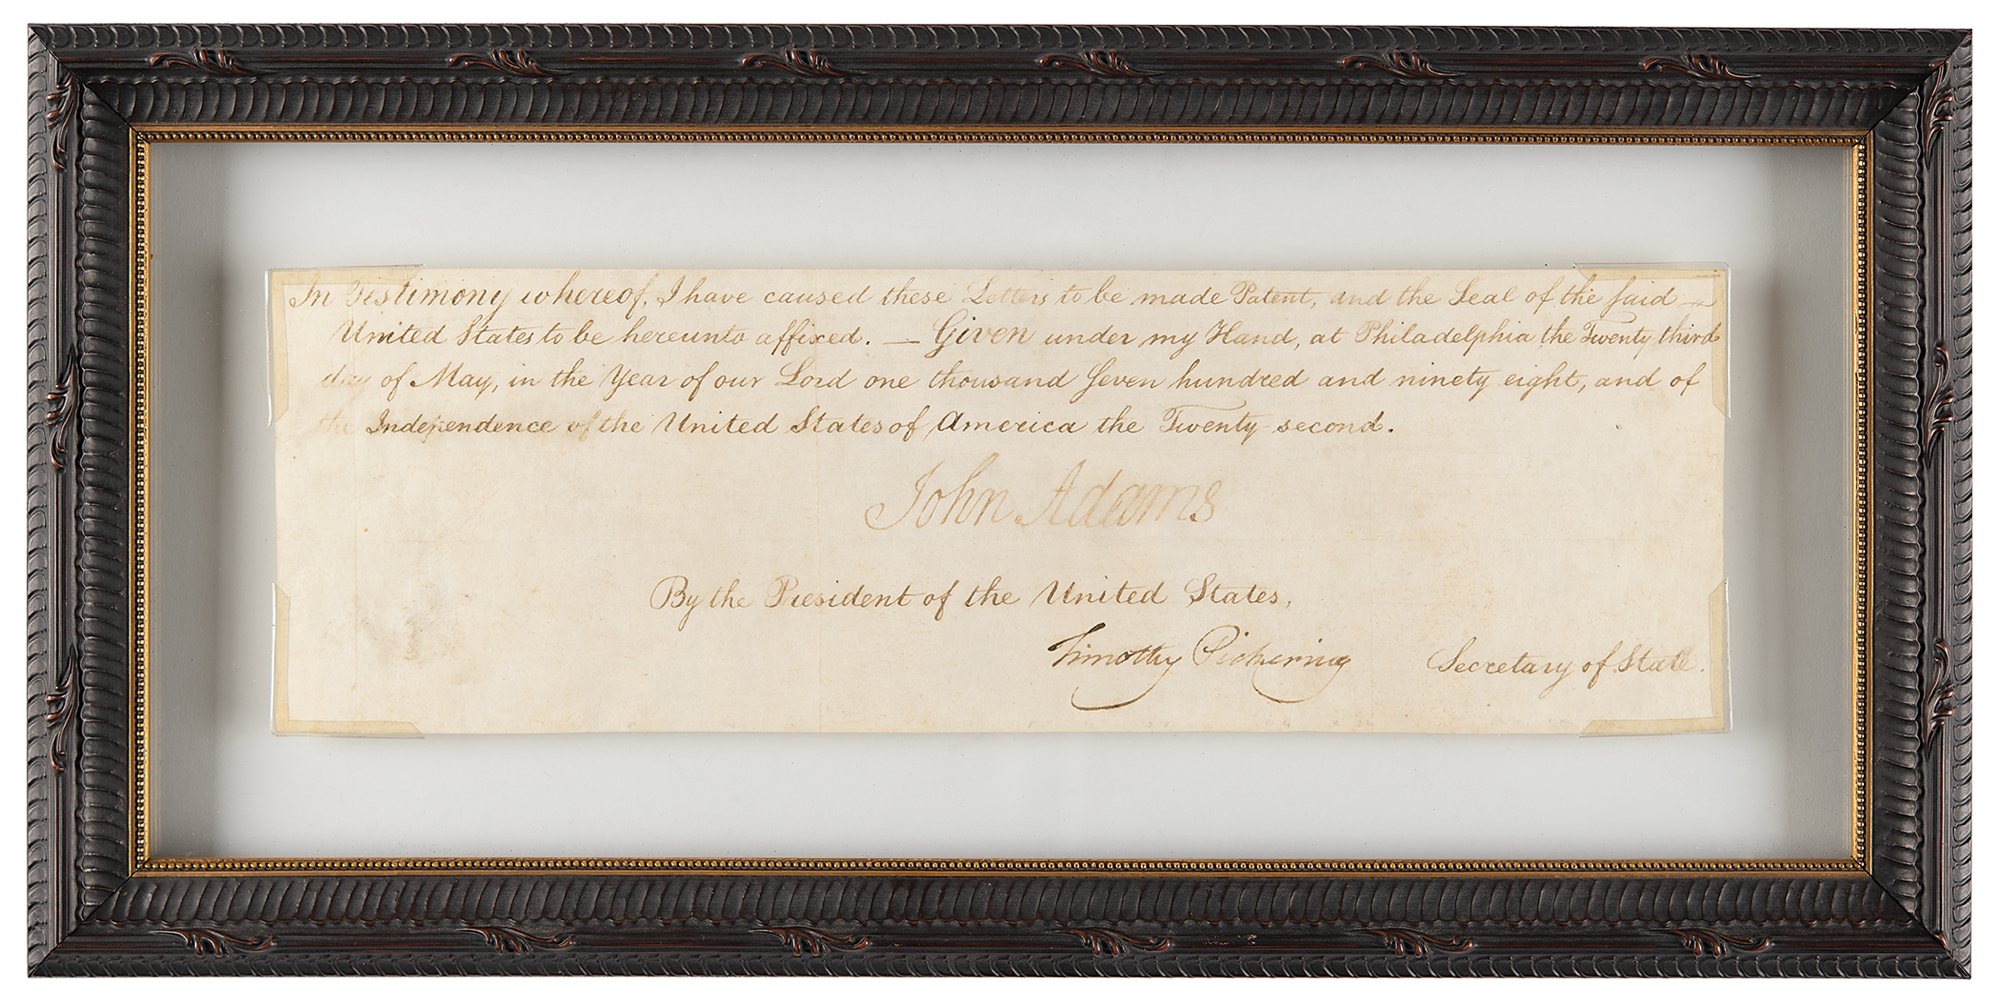 In Testimony whereof, I have caused these Letters to be made Patent, and the Seal of the said —
United States to be hereunto affixed. — Given under my Hand, at Philadelphia the Twenty third
day of May, in the Year of our Lord one thousand Seven hundred and ninety eight, and of
the Independence of the United States of America the Twenty second.
John Adams
By the President of the United States,
Timothy Pickering Secretary of State.